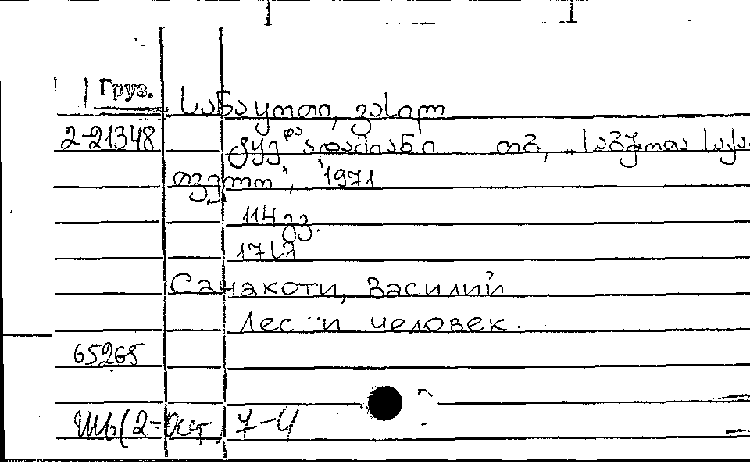 Груз.
სანაკოთი, ვასილ
2-21348
ტყე და ადამიანი თბ., „საბჭოთა საქა
რთველო", 1971
114 გვ.
Санакоти, Василий
Лес и человек.
65265
7-4